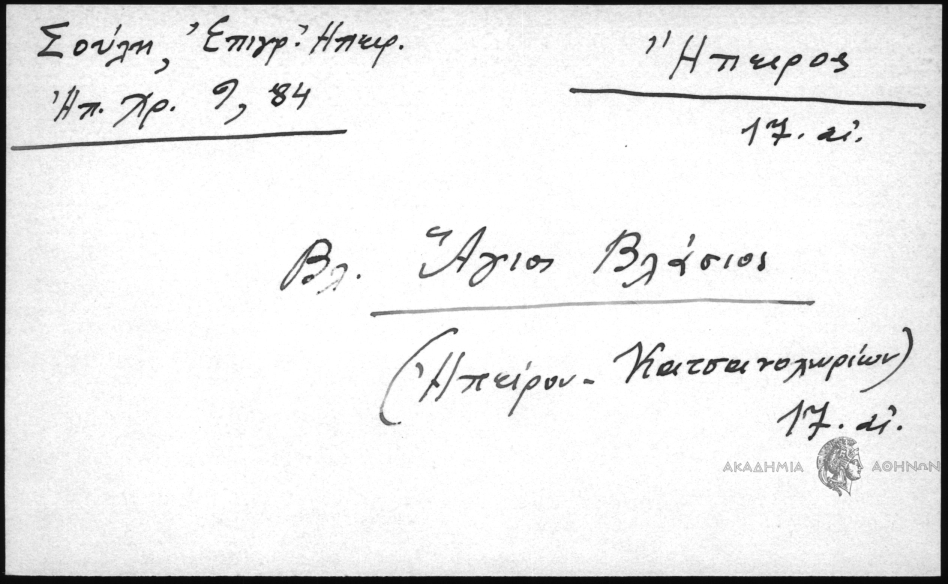 Σούλη, Ἐπιγρ. Ἠπειρ.
Ἠπ. Χρ. 9, 84
Ἤπειρος
17. αἰ.
Βλ. Ἅγιος Βλάσιος
(Ἠπείρου - Κατσανοχωρίων)
17. αἰ.
ΑΚΑΔΗΜΙΑ ΑΘΗΝΩΝ